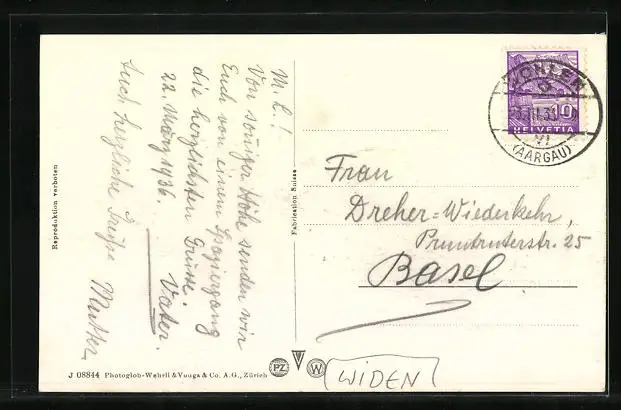 M. L.!
Von sonniger Höhe senden wir
Euch von einem Spaziergang
die herzlichsten Grüsse.
22. März 1936. Vater.
Auch herzliche Grüsse Mutter
Reproduktion verboten
Fabrication Suisse
WOHLEN
(AARGAU)
10
HELVETIA
Frau
Dreher-Wiederkehr,
Pruntruterstr. 25
Basel
J 08844 Photoglob-Wehrli & Vouga & Co. A.G., Zürich
PZ
W
WIDEN